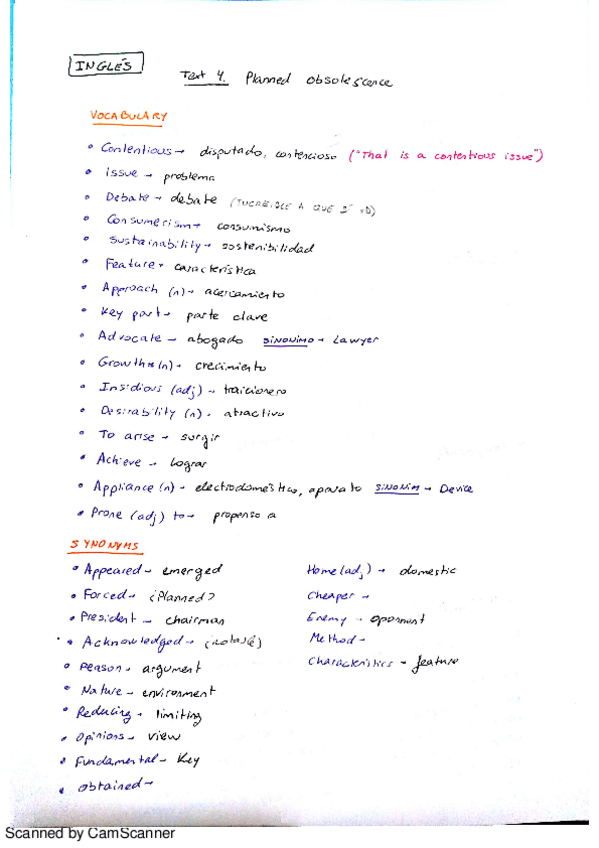 INGLÉS
Text 4. Planned obsolescence
VOCABULARY
• Contentious → disputado, contencioso ("That is a contentious issue")
• issue → problema
• Debate → debate (INCREIBLE A QUE SÍ XD)
• Consumerism → consumismo
• Sustainability → sostenibilidad
• Feature → característica
• Approach (n) → acercamiento
• Key part → parte clave
• Advocate → abogado SINONIMO → Lawyer
• Growth (n) → crecimiento
• Insidious (adj) → traicionero
• Desirability (n) → atractivo
• To arise → surgir
• Achieve → lograr
• Appliance (n) → electrodoméstico, aparato SINONIM → Device
• Prone (adj) to → propenso a
SYNONYMS
• Appeared → emerged
• Forced → ¿Planned?
• President → chairman
• Acknowledged →
• Reason → argument
• Nature → environment
• Reducing → limiting
• Opinions → view
• Fundamental → Key
• Obtained →
Home (adj) → domestic
Cheaper →
Enemy → opponent
Method →
Characteristics → feature
Scanned by CamScanner